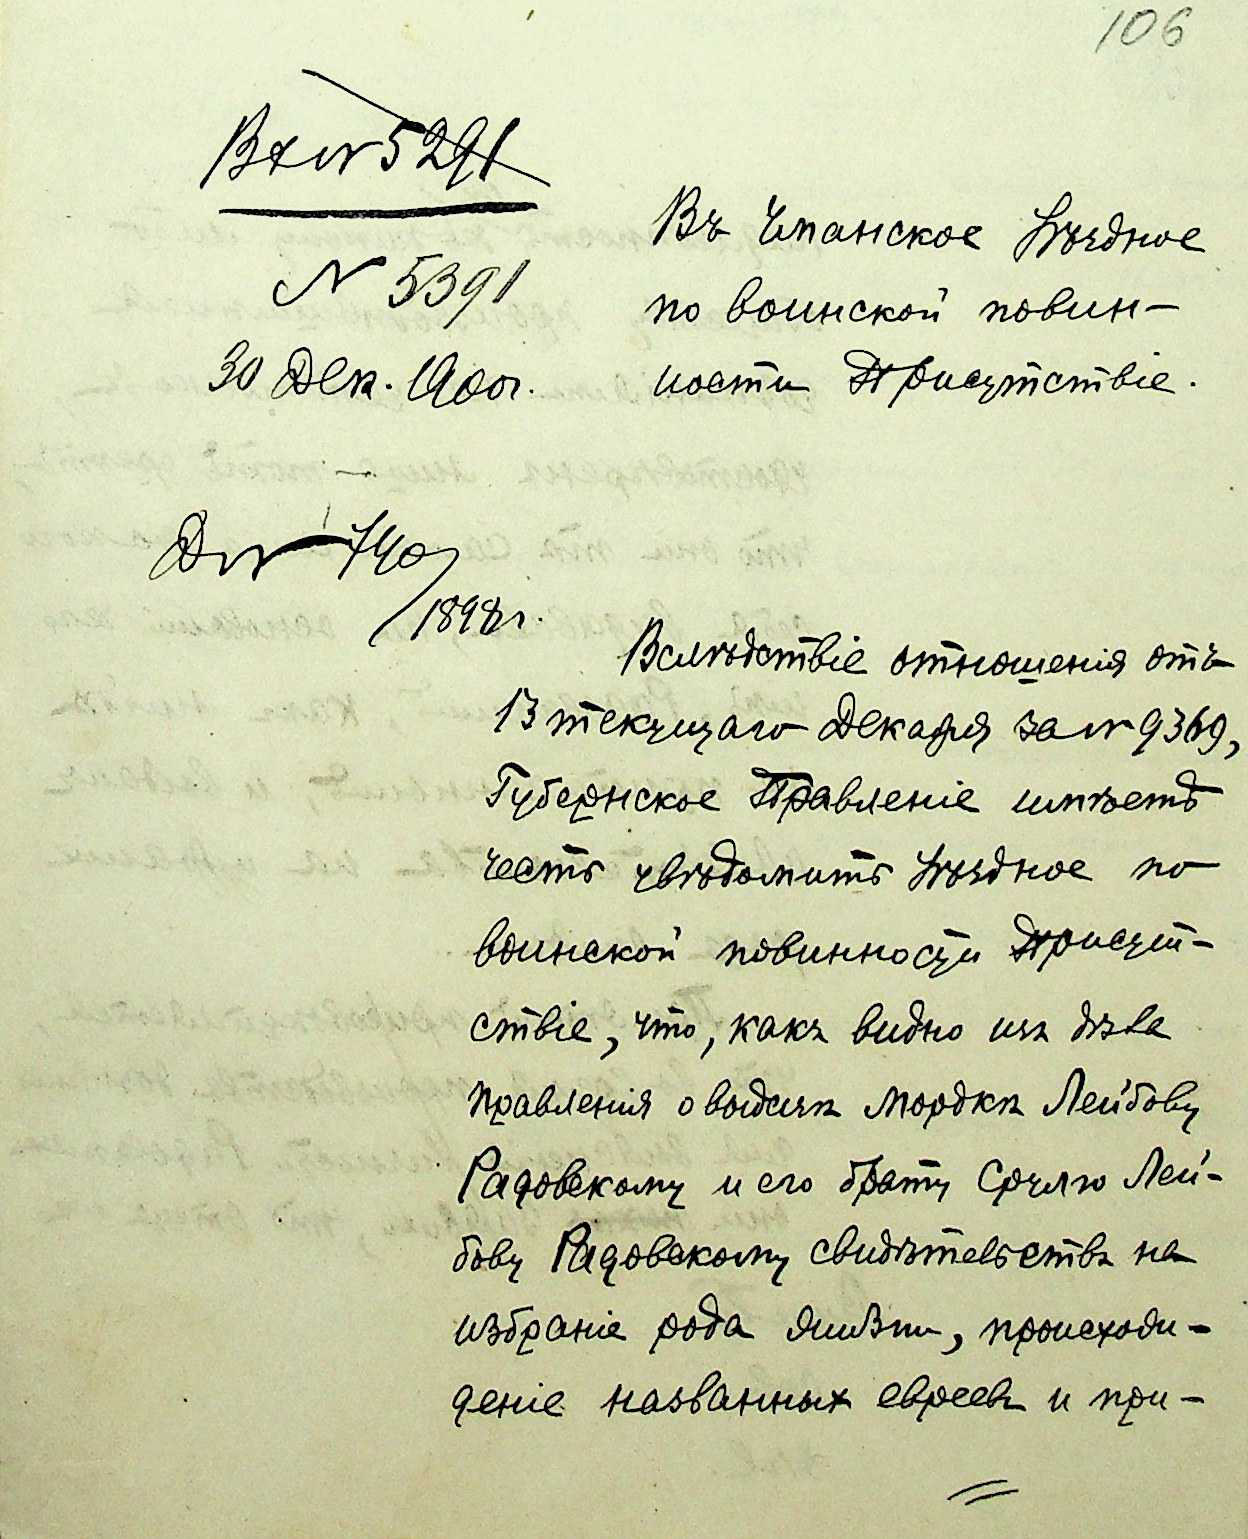 106
Вх № 5291
№ 5391
30 Дек. 1900 г.
Въ Уманское Уѣздное
по воинской повин-
ности Присутствіе.
Д № 740
/1898 г.
Вслѣдствіе отношенія отъ
13 текущаго Декабря за № 9369,
Губернское Правленіе имѣетъ
честь увѣдомить Уѣздное по
воинской повинности Присут-
ствіе, что, какъ видно изъ дѣла
Правленія о выдачѣ Мордкѣ Лейбову
Радовскому и его брату Срулю Лей-
бову Радовскому свидѣтельствъ на
избраніе рода жизни, происхож-
деніе названныхъ евреевъ и при-